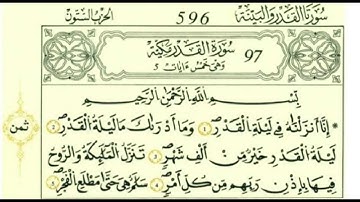 سُورَتَا القَدْر وَالبَيِّنَة 596 الحِزْبُ السِّتُّون
سُورَةُ القَدْرِ مَكِّيَّة 97
وَهِيَ خَمْسُ ءَايَاتٍ 5
بِسْمِ اللَّهِ الرَّحْمَٰنِ الرَّحِيمِ
إِنَّا أَنزَلْنَٰهُ فِي لَيْلَةِ الْقَدْرِ 1 وَمَا أَدْرَىٰكَ مَا لَيْلَةُ الْقَدْرِ 2
لَيْلَةُ الْقَدْرِ خَيْرٌ مِّنْ أَلْفِ شَهْرٍ 3 تَنَزَّلُ الْمَلَٰٓئِكَةُ وَالرُّوحُ
فِيهَا بِإِذْنِ رَبِّهِم مِّن كُلِّ أَمْرٍ 4 سَلَٰمٌ هِيَ حَتَّىٰ مَطْلَعِ الْفَجْرِ 5
ثمن